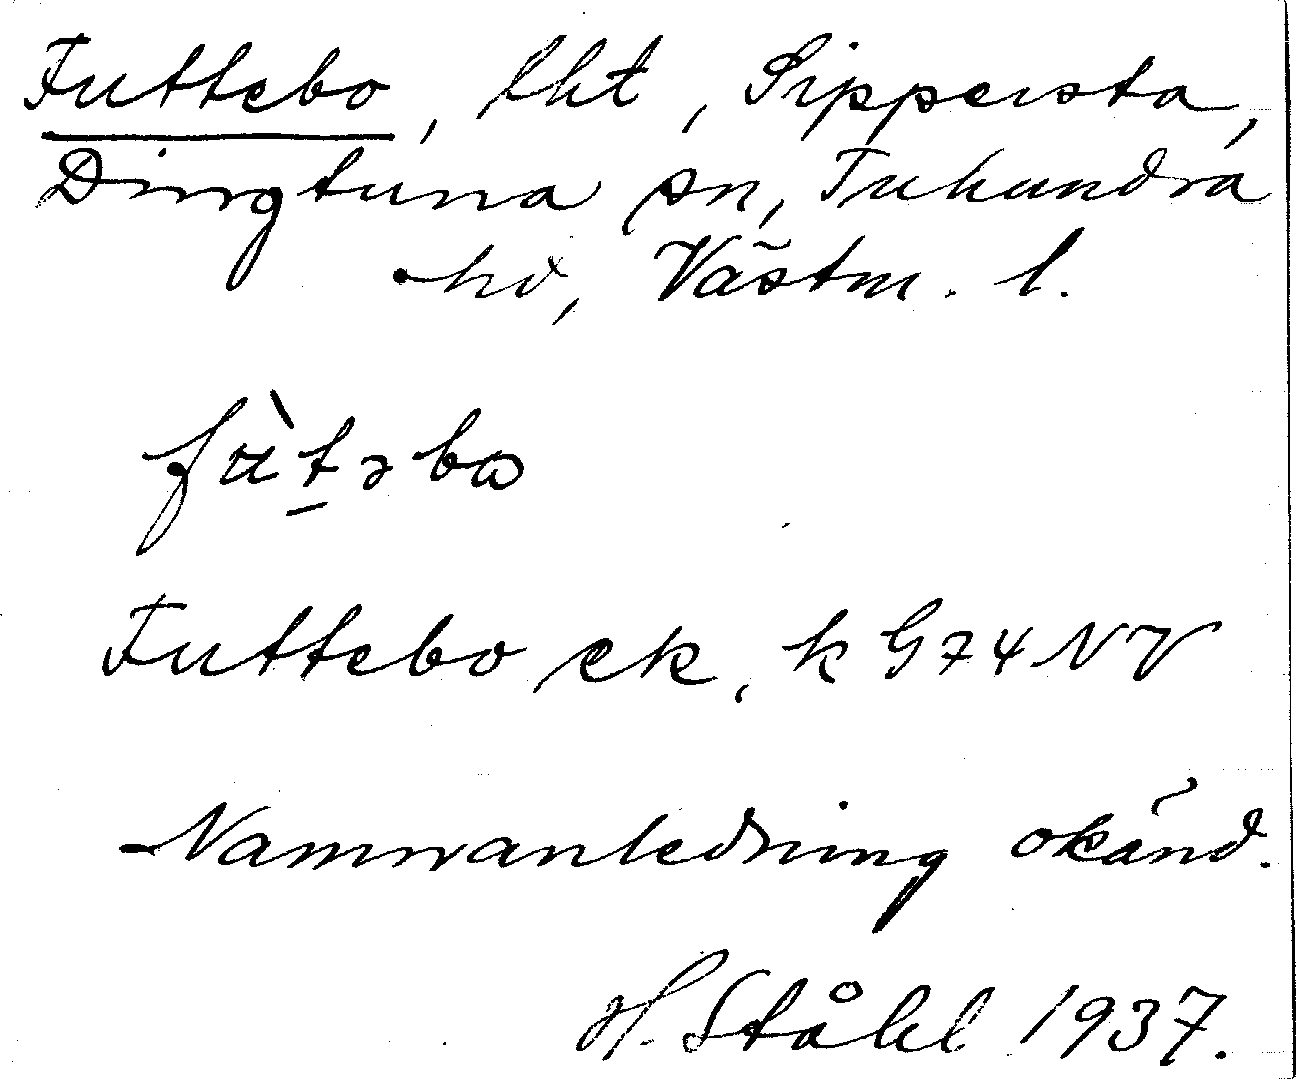 Futtebo, lht, Sippersta,
Dingtuna sn, Tuhundra
hd, Västm. l.
fùt̠əbo
Futtebo ek, k G74 NV
Namnanledning okänd.
H. Ståhl 1937.